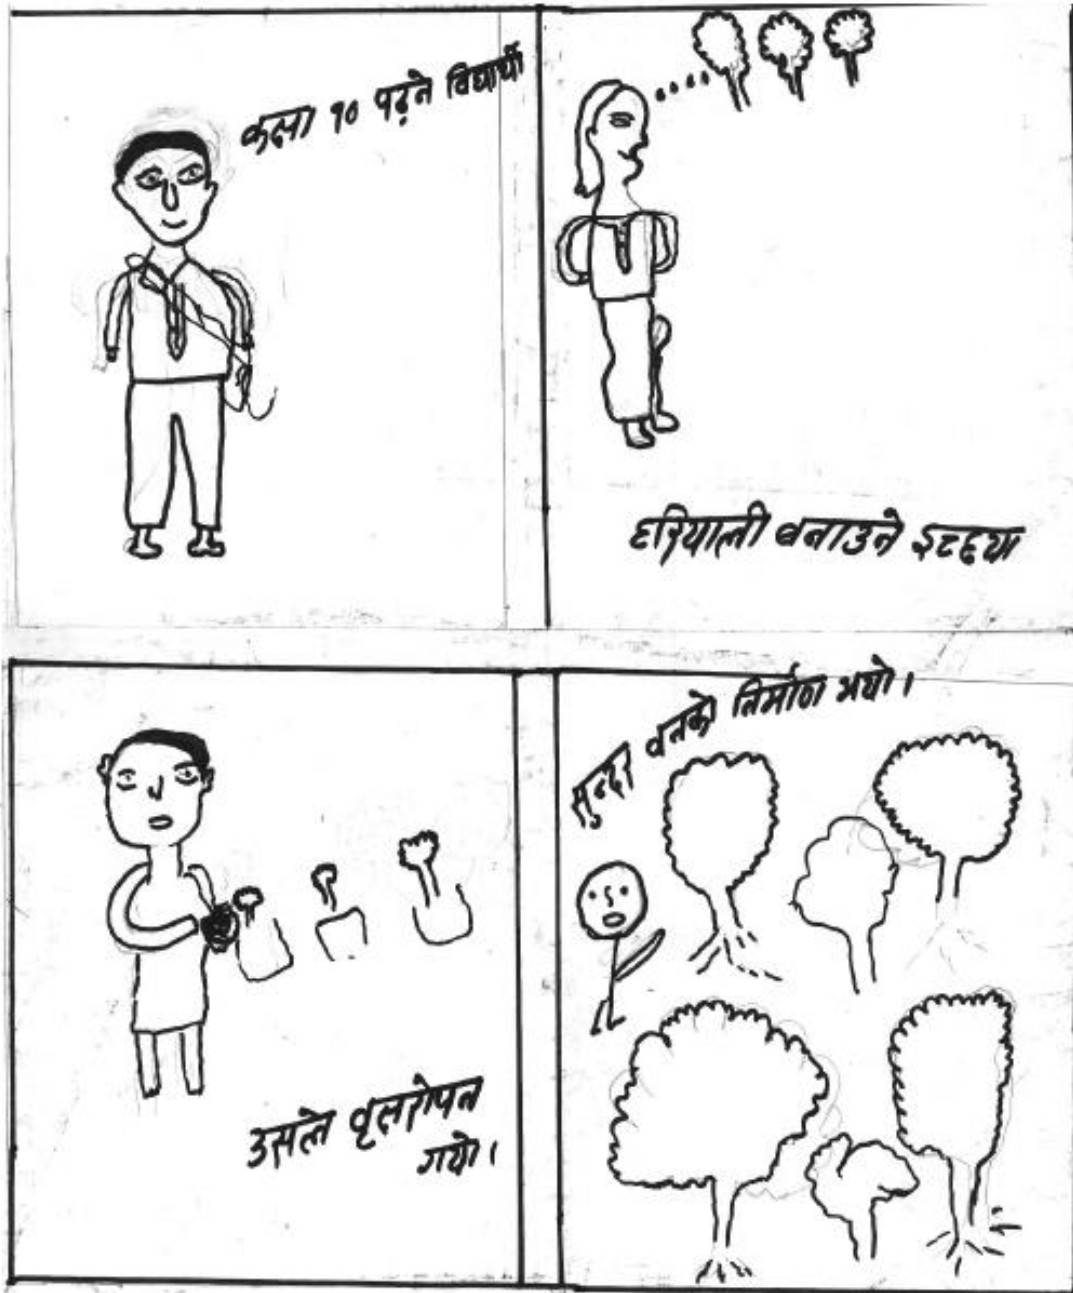 कक्षा १० पढ्ने विद्यार्थी
हरियाली बनाउने इच्छ्या
उसले वृक्षरोपन
गर्यो।
सुन्दर वनको निर्माण भयो।